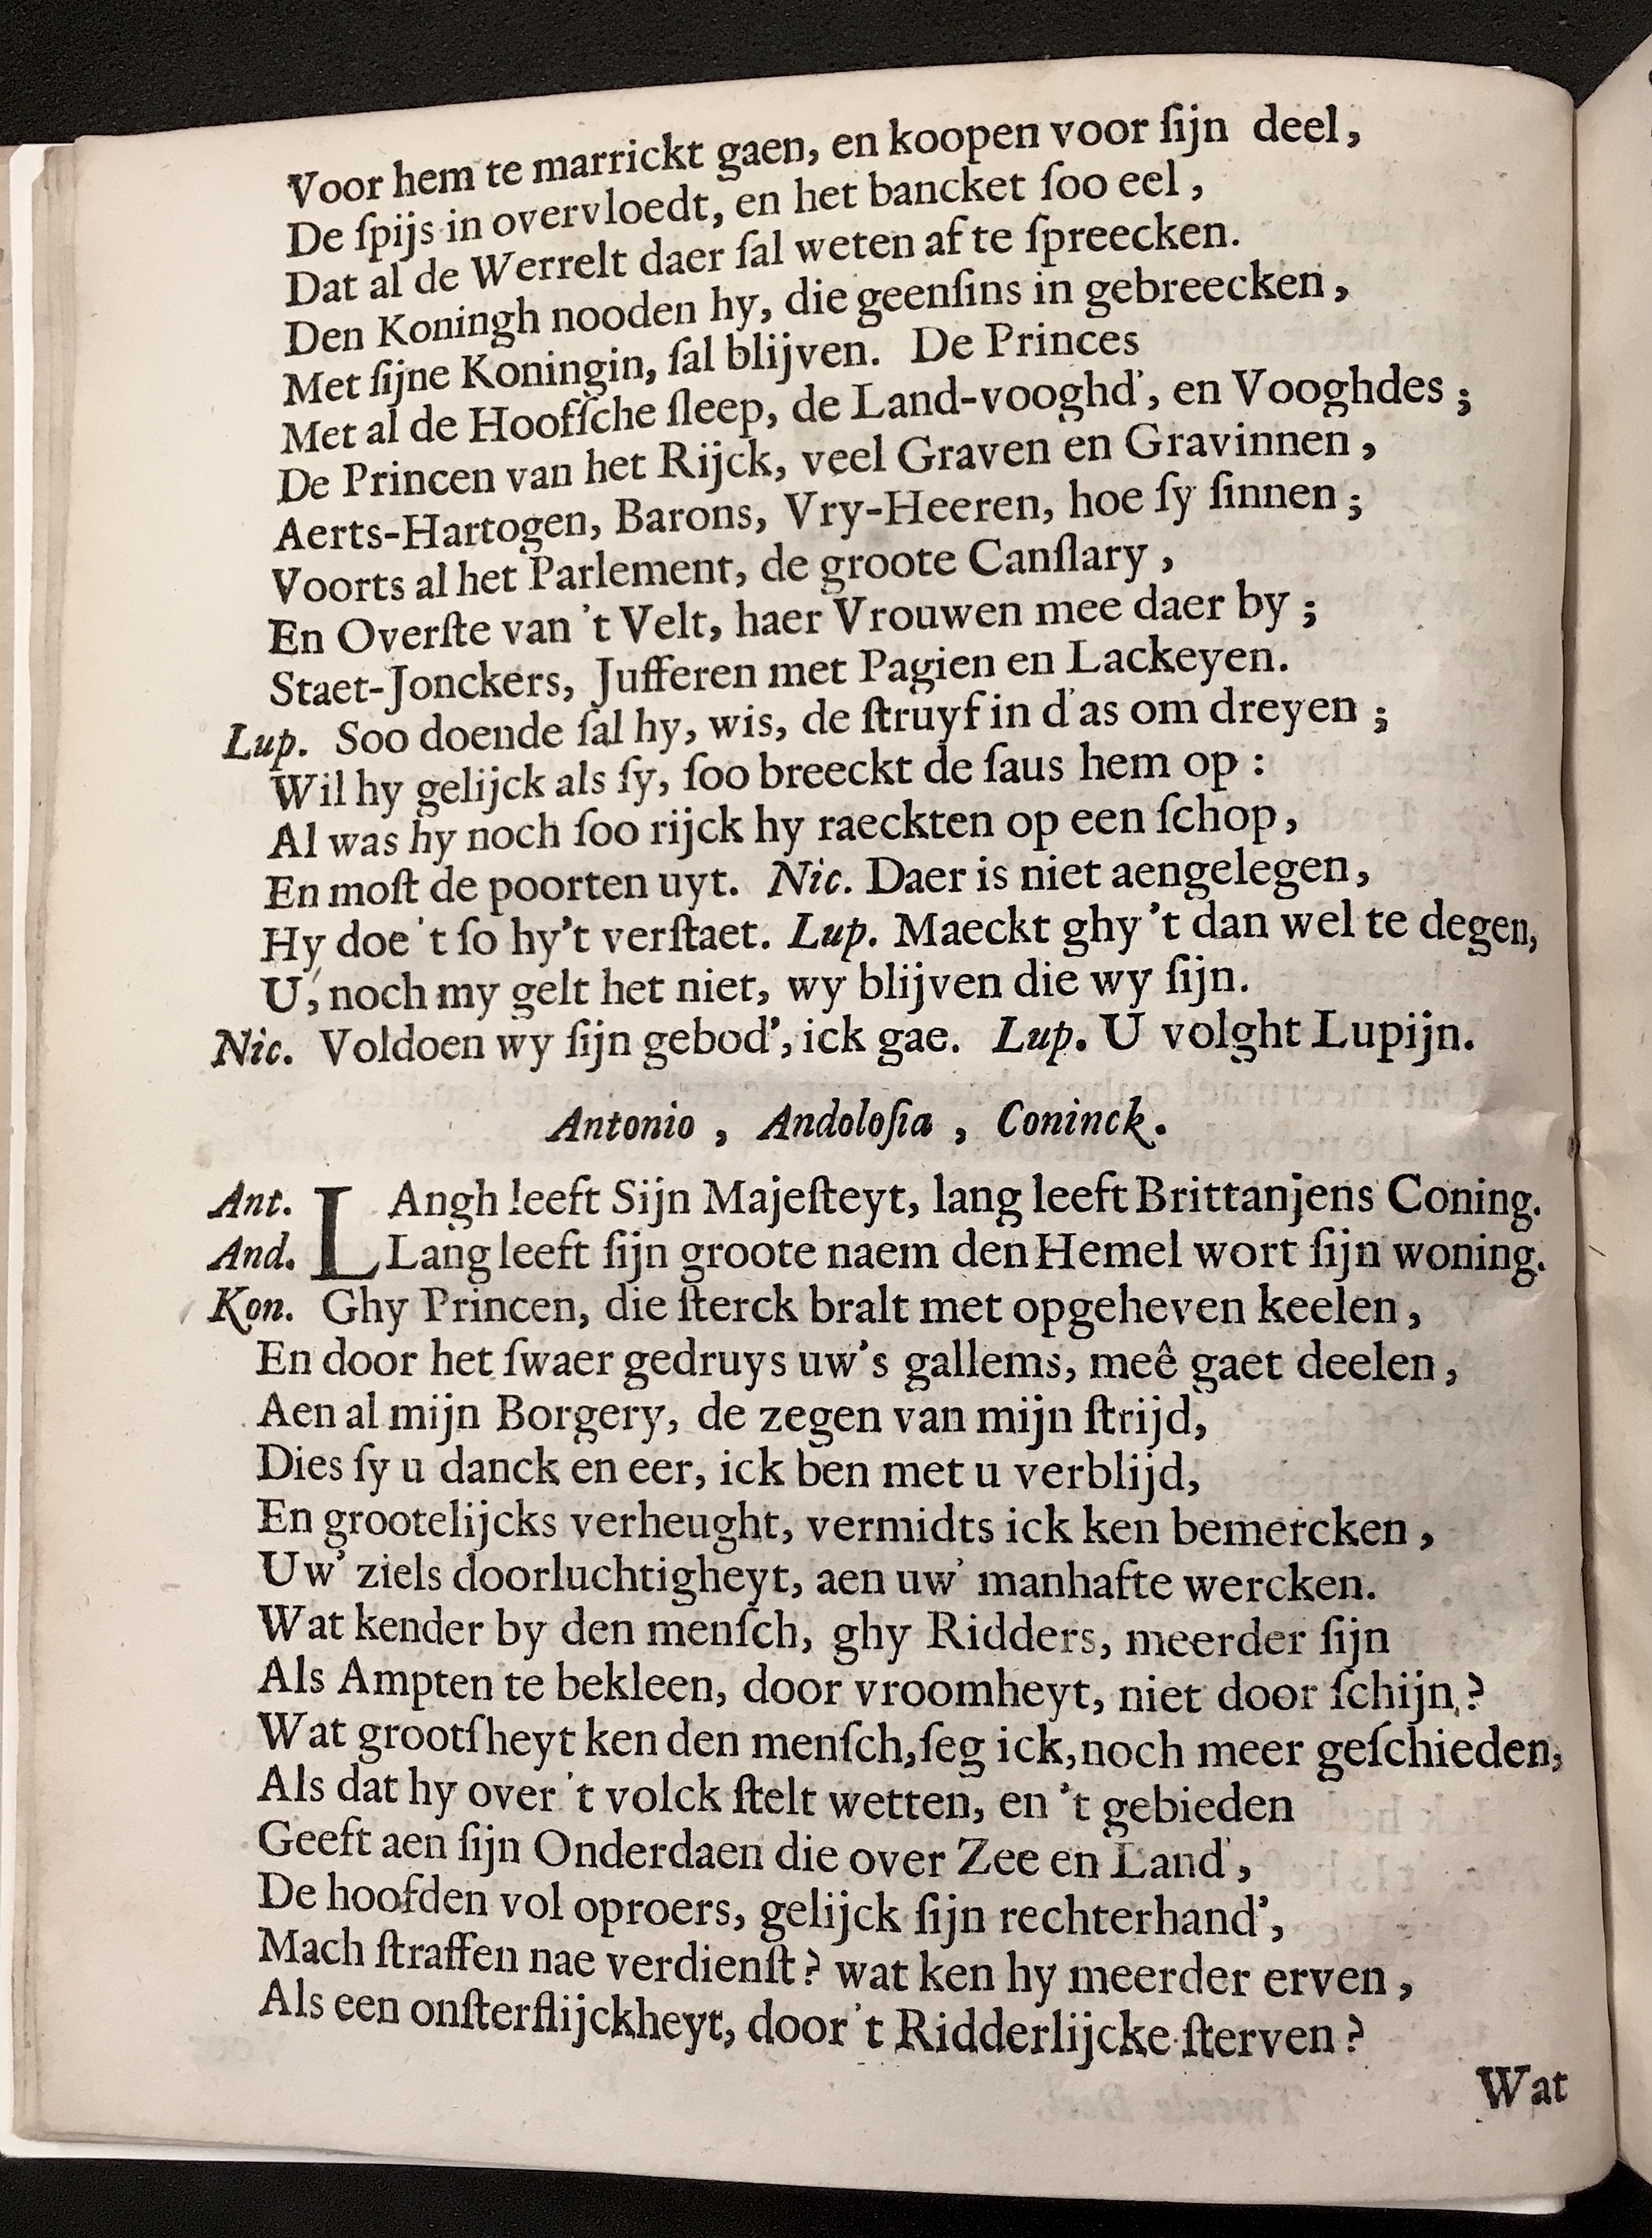 Voor hem te marrickt gaen, en koopen voor ſijn deel,
De ſpijs in overvloedt, en het bancket ſoo eel,
Dat al de Werrelt daer ſal weten af te ſpreecken.
Den Koningh nooden hy, die geenſins in gebreecken,
Met ſijne Koningin, ſal blijven. De Princes
Met al de Hoofſche ſleep, de Land-vooghd', en Vooghdes;
De Princen van het Rijck, veel Graven en Gravinnen,
Aerts-Hartogen, Barons, Vry-Heeren, hoe ſy ſinnen;
Voorts al het Parlement, de groote Canſlary,
En Overſte van 't Velt, haer Vrouwen mee daer by;
Staet-Jonckers, Jufferen met Pagien en Lackeyen.
Lup. Soo doende ſal hy, wis, de ſtruyf in d'as om dreyen;
Wil hy gelijck als ſy, ſoo breeckt de ſaus hem op:
Al was hy noch ſoo rijck hy raeckten op een ſchop,
En moſt de poorten uyt. Nic. Daer is niet aengelegen,
Hy doe 't ſo hy't verſtaet. Lup. Maeckt ghy 't dan wel te degen,
U, noch my gelt het niet, wy blijven die wy ſijn.
Nic. Voldoen wy ſijn gebod', ick gae. Lup. U volght Lupijn.
Antonio, Andoloſia, Coninck.
Ant. LAngh leeft Sijn Majeſteyt, lang leeft Brittanjens Coning.
And. Lang leeft ſijn groote naem den Hemel wort ſijn woning.
Kon. Ghy Princen, die ſterck bralt met opgeheven keelen,
En door het ſwaer gedruys uw's gallems, meê gaet deelen,
Aen al mijn Borgery, de zegen van mijn ſtrijd,
Dies ſy u danck en eer, ick ben met u verblijd,
En grootelijcks verheught, vermidts ick ken bemercken,
Uw' ziels doorluchtigheyt, aen uw' manhafte wercken.
Wat kender by den menſch, ghy Ridders, meerder ſijn
Als Ampten te bekleen, door vroomheyt, niet door ſchijn?
Wat grootſheyt ken den menſch, ſeg ick, noch meer geſchieden,
Als dat hy over 't volck ſtelt wetten, en 't gebieden
Geeft aen ſijn Onderdaen die over Zee en Land',
De hoofden vol oproers, gelijck ſijn rechterhand',
Mach ſtraffen nae verdienſt? wat ken hy meerder erven,
Als een onſterflijckheyt, door 't Ridderlijcke ſterven?
Wat